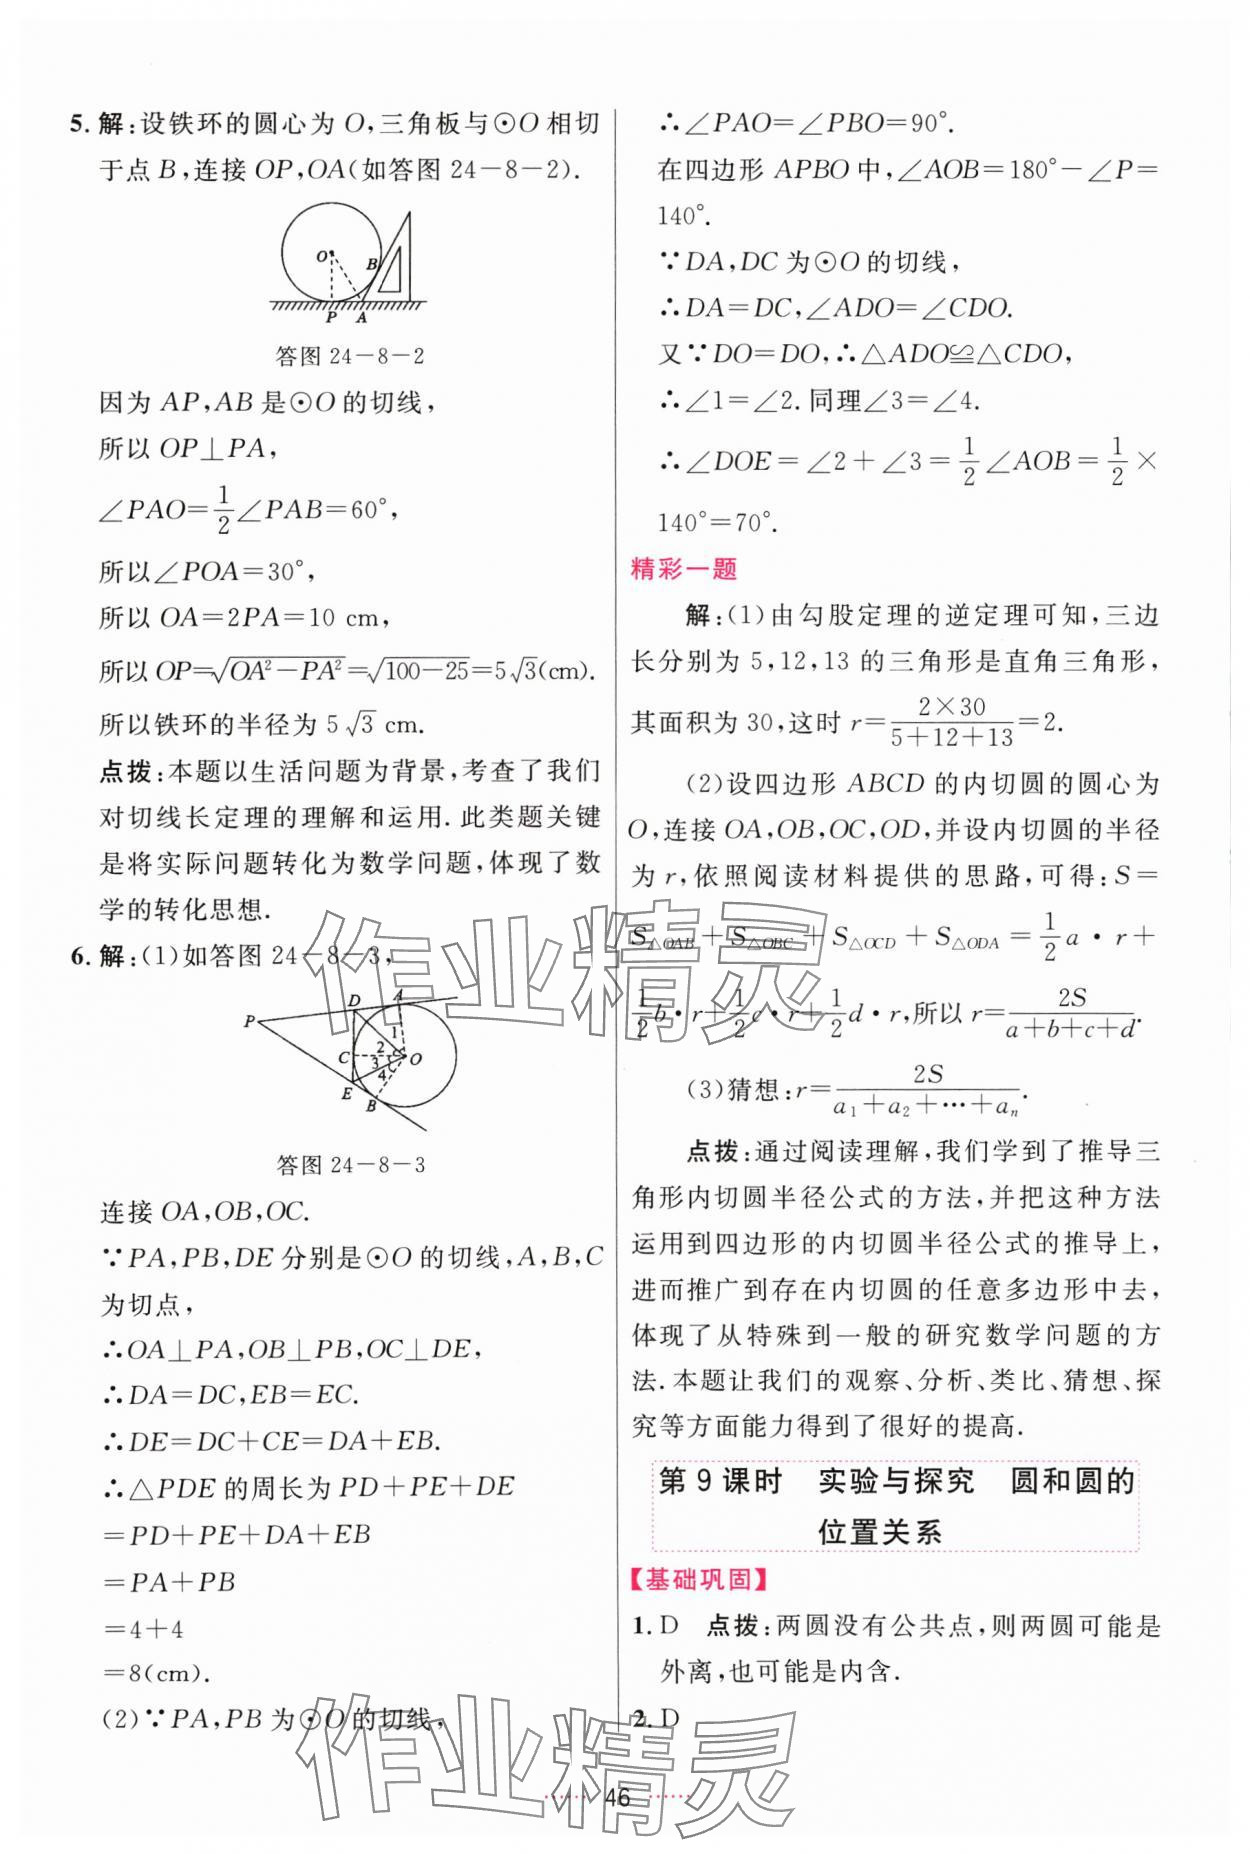 5. 解:设铁环的圆心为 O,三角板与⊙O 相切
于点 B,连接 OP,OA(如答图 24-8-2).
O
B
P A
答图 24-8-2
因为 AP,AB 是⊙O 的切线,
所以 OP⊥PA,
∠PAO=1/2∠PAB=60°,
所以∠POA=30°,
所以 OA=2PA=10 cm,
所以 OP=√(OA²-PA²)=√(100-25)=5√3(cm).
所以铁环的半径为 5√3 cm.
点拨:本题以生活问题为背景,考查了我们
对切线长定理的理解和运用. 此类题关键
是将实际问题转化为数学问题,体现了数
学的转化思想.
6. 解:(1)如答图 24-8-3,
D A
P
1
C 2 O
3
4
E
B
答图 24-8-3
连接 OA,OB,OC.
∵PA,PB,DE 分别是⊙O 的切线,A,B,C
为切点,
∴OA⊥PA,OB⊥PB,OC⊥DE,
∴DA=DC,EB=EC.
∴DE=DC+CE=DA+EB.
∴△PDE 的周长为 PD+PE+DE
=PD+PE+DA+EB
=PA+PB
=4+4
=8(cm).
(2)∵PA,PB 为⊙O 的切线,
∴∠PAO=∠PBO=90°.
在四边形 APBO 中,∠AOB=180°-∠P=
140°.
∵DA,DC 为⊙O 的切线,
∴DA=DC,∠ADO=∠CDO.
又∵DO=DO,∴△ADO≌△CDO,
∴∠1=∠2. 同理∠3=∠4.
∴∠DOE=∠2+∠3=1/2∠AOB=1/2×
140°=70°.
精彩一题
解:(1)由勾股定理的逆定理可知,三边
长分别为 5,12,13 的三角形是直角三角形,
其面积为 30,这时 r=(2×30)/(5+12+13)=2.
(2)设四边形 ABCD 的内切圆的圆心为
O,连接 OA,OB,OC,OD,并设内切圆的半径
为 r,依照阅读材料提供的思路,可得:S=
S△OAB+S△OBC+S△OCD+S△ODA=1/2a·r+
1/2b·r+1/2c·r+1/2d·r,所以 r=2S/(a+b+c+d).
(3)猜想:r=2S/(a₁+a₂+…+aₙ).
点拨:通过阅读理解,我们学到了推导三
角形内切圆半径公式的方法,并把这种方法
运用到四边形的内切圆半径公式的推导上,
进而推广到存在内切圆的任意多边形中去,
体现了从特殊到一般的研究数学问题的方
法. 本题让我们的观察、分析、类比、猜想、探
究等方面能力得到了很好的提高.
第 9 课时 实验与探究 圆和圆的
位置关系
【基础巩固】
1. D 点拨:两圆没有公共点,则两圆可能是
外离,也可能是内含.
2. D
46
作业精灵
作业精灵